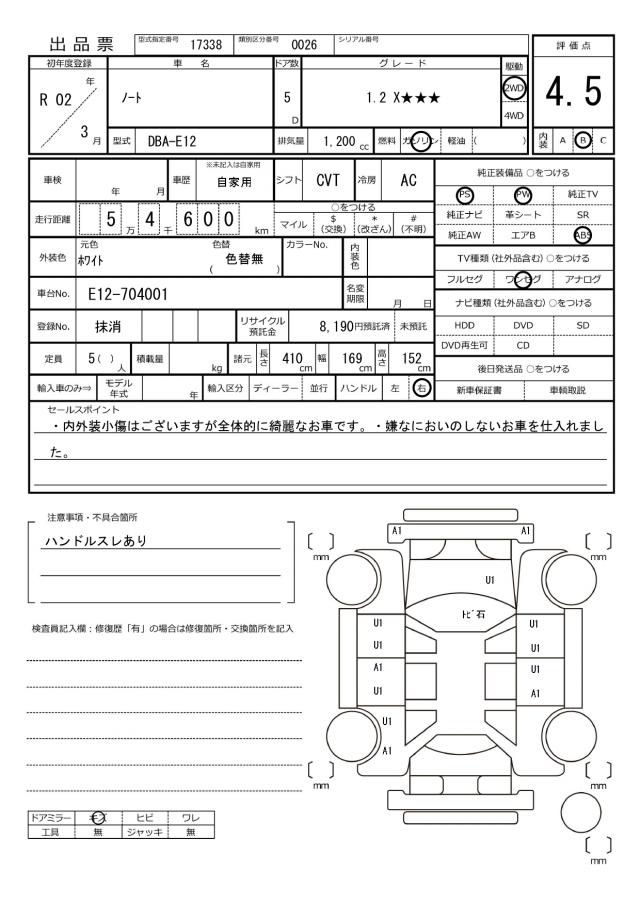 出品票 型式指定番号 17338 類別区分番号 0026 シリアル番号
評価点
4.5
内装 A B C
初年度登録 車名 ドア数 グレード 駆動
R 02 年 3 月
ノート
5 D
1.2 X★★★
2WD
4WD
型式 DBA-E12 排気量 1,200 cc 燃料 ガソリン 軽油 ( )
車検 年 月 車歴 ※未記入は自家用 自家用 シフト CVT 冷房 AC
走行距離 5 万 4 千 6 0 0 km
○をつける
マイル $(交換) *(改ざん) #(不明)
外装色 元色 ホワイト 色替 ( 色替無 ) カラーNo. 内装色
車台No. E12-704001 名変期限 月 日
登録No. 抹消 リサイクル預託金 8,190円預託済 未預託
定員 5( )人 積載量 kg 諸元 長さ 410 cm 幅 169 cm 高さ 152 cm
輸入車のみ⇒ モデル年式 年 輸入区分 ディーラー 並行 ハンドル 左 右
純正装備品 ○をつける
PS PW 純正TV
純正ナビ 革シート SR
純正AW エアB ABS
TV種類(社外品含む)○をつける
フルセグ ワンセグ アナログ
ナビ種類(社外品含む)○をつける
HDD DVD SD
DVD再生可 CD
後日発送品 ○をつける
新車保証書 車輌取説
セールスポイント
・内外装小傷はございますが全体的に綺麗なお車です。・嫌なにおいのしないお車を仕入れまし
た。
注意事項・不具合箇所
ハンドルスレあり
検査員記入欄：修復歴「有」の場合は修復箇所・交換箇所を記入
A1 A1
[ ] mm [ ] mm
U1
トビ石
U1 U1
U1 U1
A1 U1
U1 A1
U1
A1
[ ] mm [ ] mm
[ ] mm
ドアミラー キズ ヒビ ワレ
工具 無 ジャッキ 無